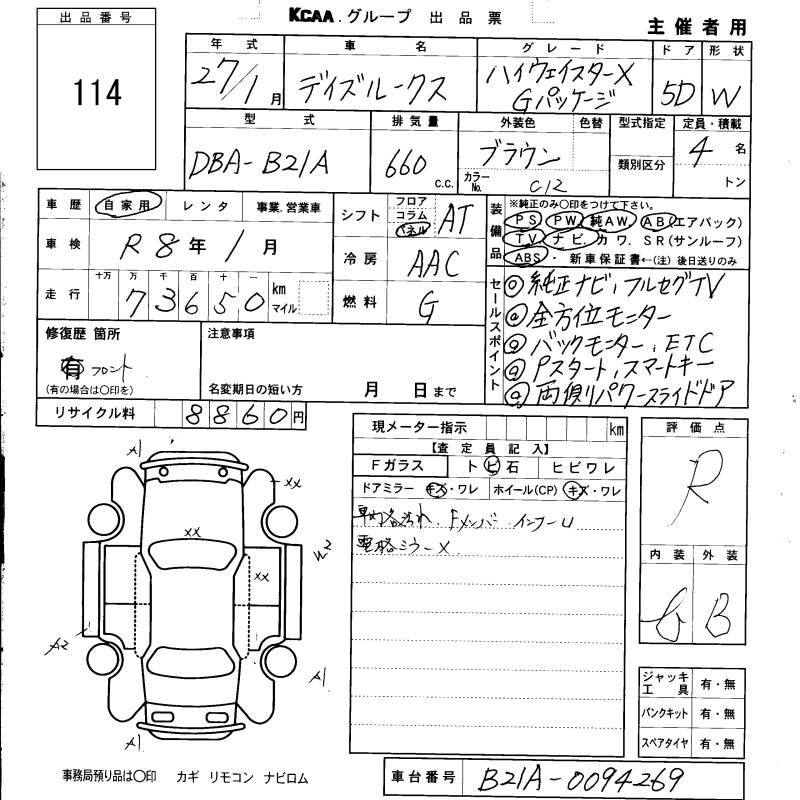 出品番号
114
KCAA.グループ 出品票
主催者用
年式 車名 グレード ドア 形状
27/1月 デイズルークス ハイウェイスターX 5D W
Gパッケージ
型式 排気量 外装色 色替 型式指定 定員・積載
DBA-B21A 660 c.c. ブラウン 類別区分 4名
カラーNo. C12 トン
車歴 自家用 レンタ 事業.営業車
車検 R8年1月
走行 十万 万 千 百 十 一
73650 km マイル
シフト フロア コラム パネル AT
冷房 AAC
燃料 G
装備品 ※純正のみ○印をつけて下さい。
PS PW 純AW AB(エアバック)
TV ナビ カワ.SR(サンルーフ)
ABS・新車保証書←(注)後日送りのみ
セールスポイント
◎純正ナビ,フルセグTV
◎全方位モニター
◎バックモニター,ETC
◎Pスタート,スマートキー
◎両側パワースライドドア
修復歴 箇所
有 フロント
(有の場合は○印を)
注意事項
名変期日の短い方 月 日まで
リサイクル料 8860円
現メーター指示 km
【査定員記入】
Fガラス トビ石 ヒビワレ
ドアミラー キズ・ワレ ホイール(CP) キズ・ワレ
車内各汚れ.Fメンバー インナーU
電格ミラーX
評価点
R
内装 外装
B
A1
XX
XX
W2
XX
A2
A1
A1
ジャッキ工具 有・無
パンクキット 有・無
スペアタイヤ 有・無
事務局預り品は○印 カギ リモコン ナビロム
車台番号 B21A-0094269